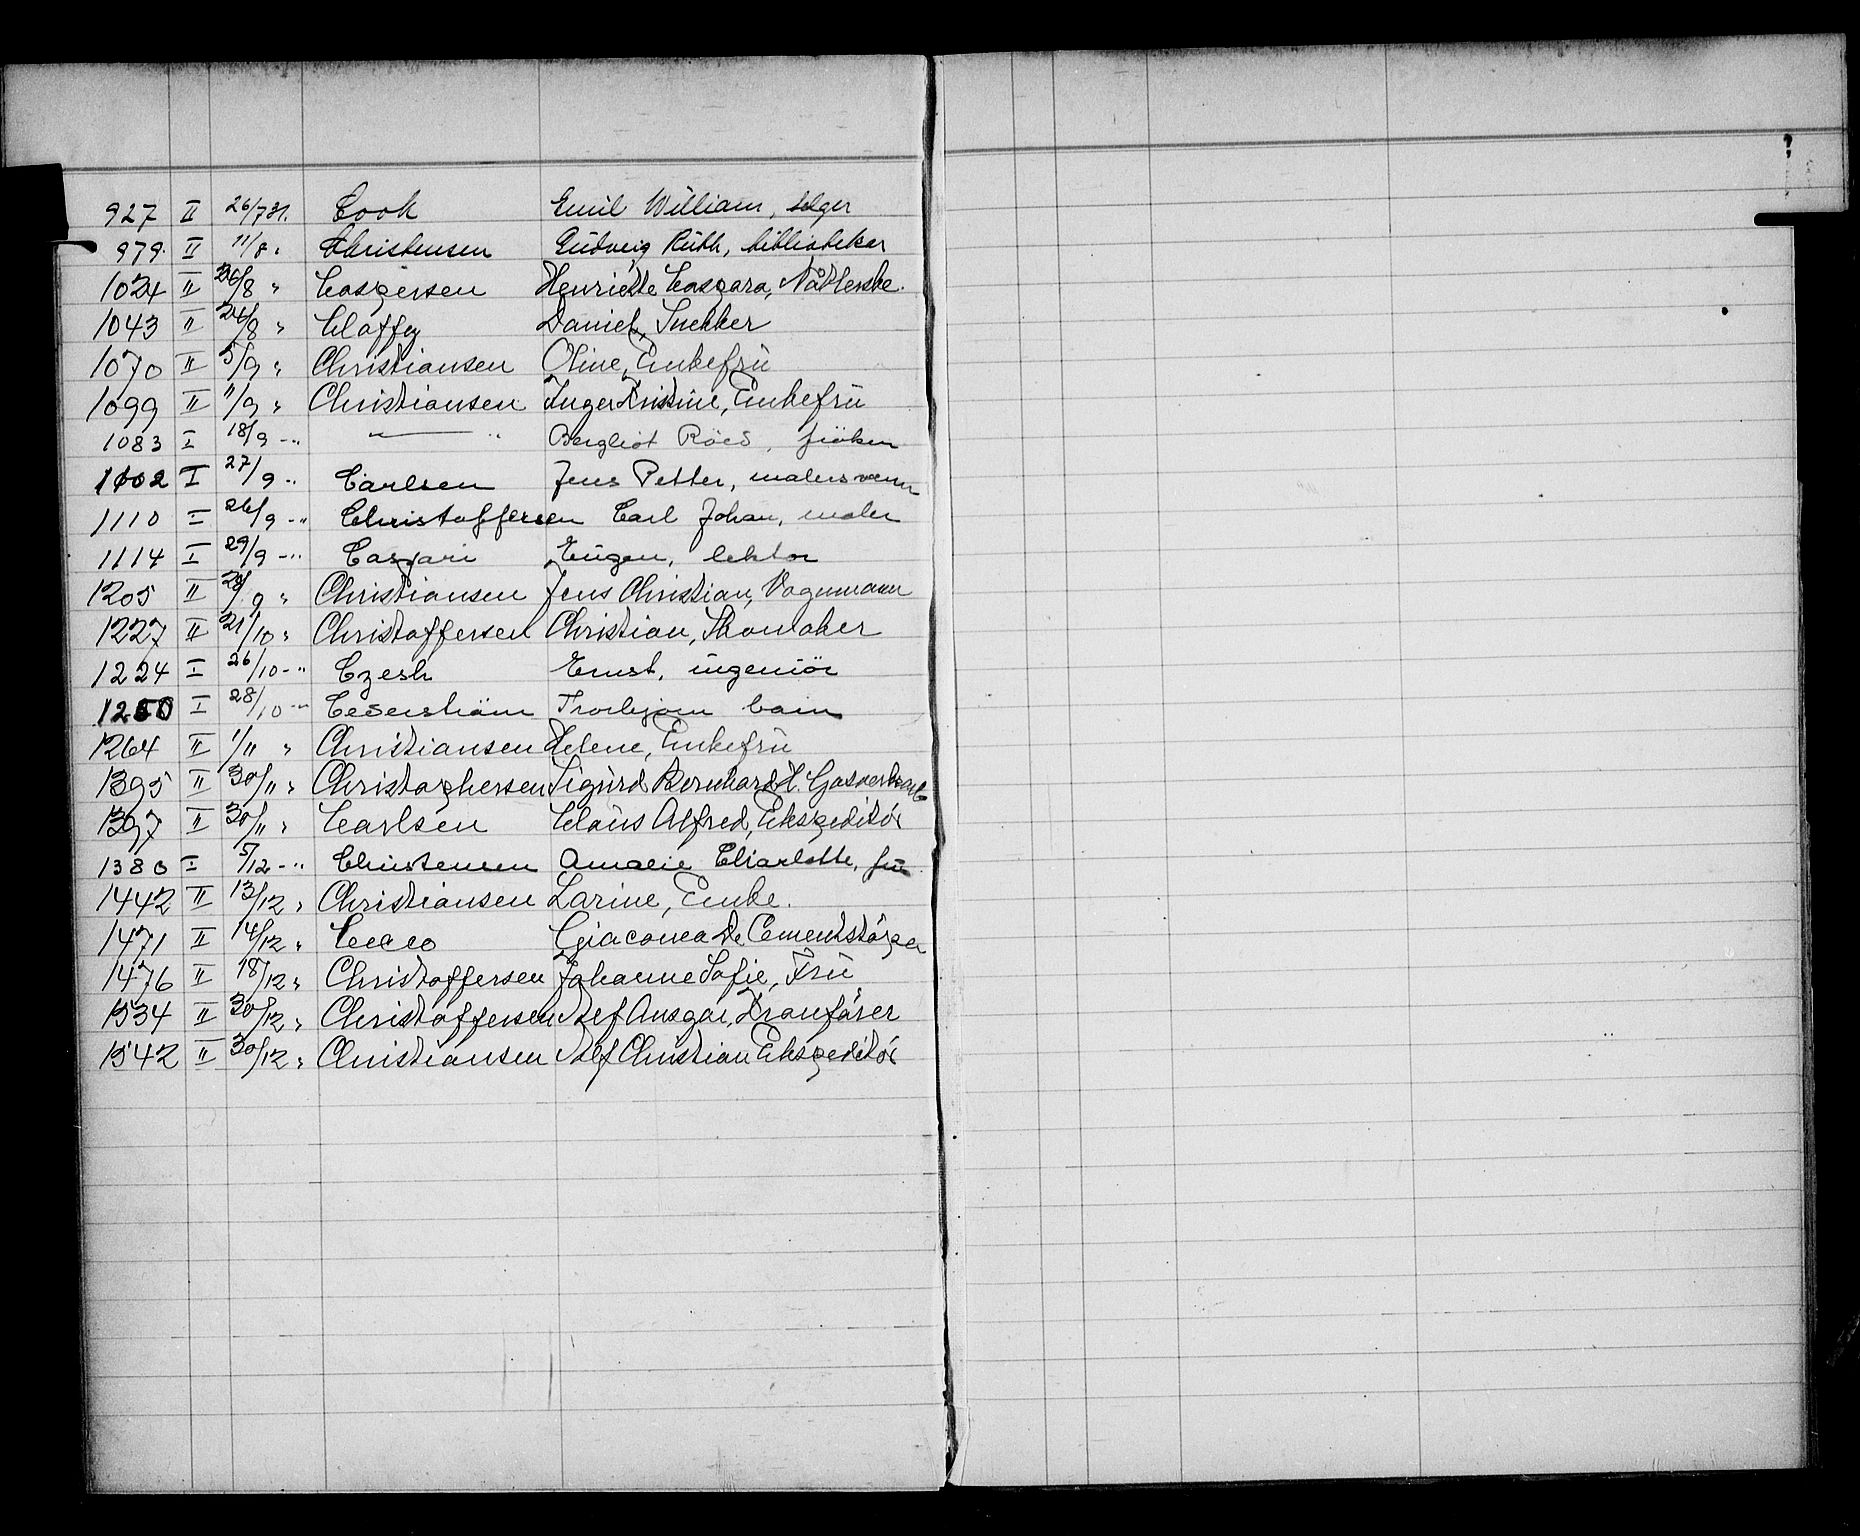 927 II 26/7 31. Cook Emil William, selger
979. II 11/8 " Christensen Gudveig Ruth, bibliotekar
1024 II 26/8 " Caspersen Henriette Caspara, Nådlerske.
1043 II 24/8 " Claffey Daniel, Snekker
1070 II 5/9 " Christiansen Oline, Enkefrü
1099 II 11/9 " Christiansen Inger Kristine, Enkefrü
1083 I 18/9 -" — " Bergliot Röed, fröken
1102 I 27/9 -" Carlsen Jens Petter, malersvenn
1110 I 26/9 -" Christoffersen Carl Johan, maler
1114 I 29/9 -" Caspari Eugen, lektor
1205 II 20/9 " Christiansen Jens Christian, Vognmann
1227 II 21/10 " Christoffersen Christian, Skomaker
1224 I 26/10 -" Czesh Ernst, ingeniör
1250 I 28/10 -" Cederström Thorbjørn barn
1264 II 1/11 " Christiansen Helene, Enkefrü
1395 II 30/11 " Christophersen Sigurd Bernhard H. Gasverksarb
1397 II 30/11 " Carlsen Claus Alfred, Ekspeditör
1380 I 5/12 -" Christensen Amalie Charlotte, frü
1442 II 13/12 " Christiansen Larine, Enke.
1471 II 14/12 " Cecco Giacomo De Cementstöper
1476 II 18/12 " Christoffersen Johanne Sofie, Frü
1534 II 30/12 " Christoffersen Alf Ansgar, Kranförer
1542 II 30/12 " Christiansen Alf Christian Ekspeditör